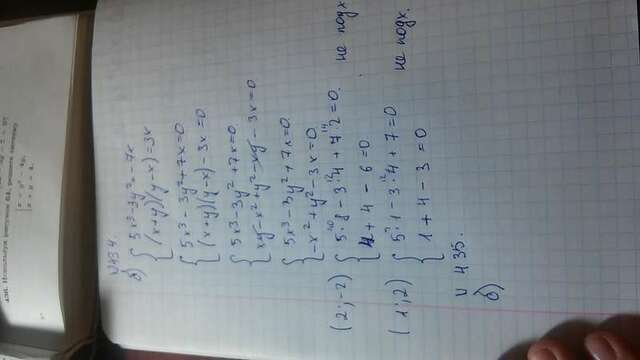 436. Используя рисунок 64, решите систему
{ x = y² − 4y,
x + y = 4.
N 434
б) { 5x³-3y²=-7x
(x+y)(y-x)=3x
{ 5x³-3y²+7x=0
(x+y)(y-x)-3x=0
{ 5x³-3y²+7x=0
xy-x²+y²-xy-3x=0
{ 5x³-3y²+7x=0
-x²+y²-3x=0
(2;-2) { 5·8-3·4+7·2=0 не подх
4+4-6=0
(1;2) { 5·1-3·4+7=0 не подх.
1+4-3=0
N 435.
б)